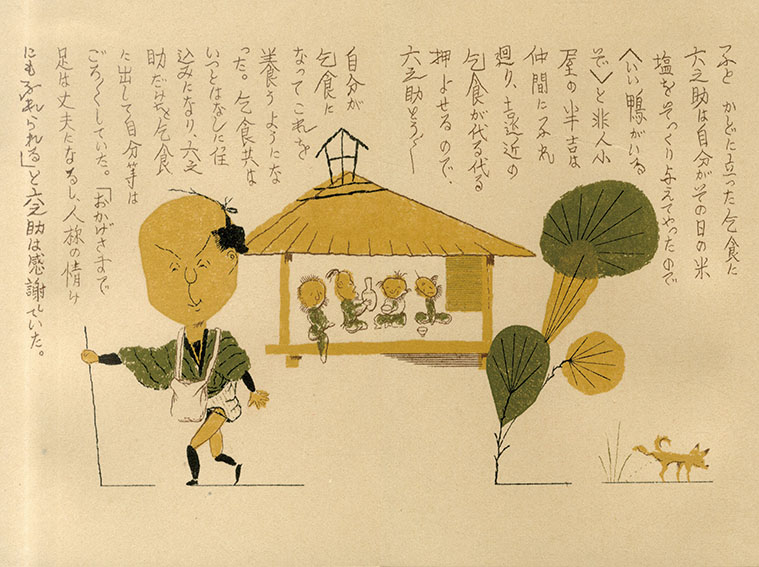 ふと かどに立った乞食に
六之助は自分がその日の米
塩をそっくり与えてやったので
〈いい鴨がいる
ぞ〉と非人小
屋の半吉は
仲間にふれ
廻り、遠近の
乞食が代る代る
押よせるので、
六之助とう〱
自分が
乞食に
なってこれを
養うようにな
った。乞食共は
いつとはなしに住
込みになり、六之
助だけを乞食
に出して自分等は
ごろ〱していた。「おかげさまで
足は丈夫になるし、人様の情け
にもふれられる」と六之助は感謝していた。